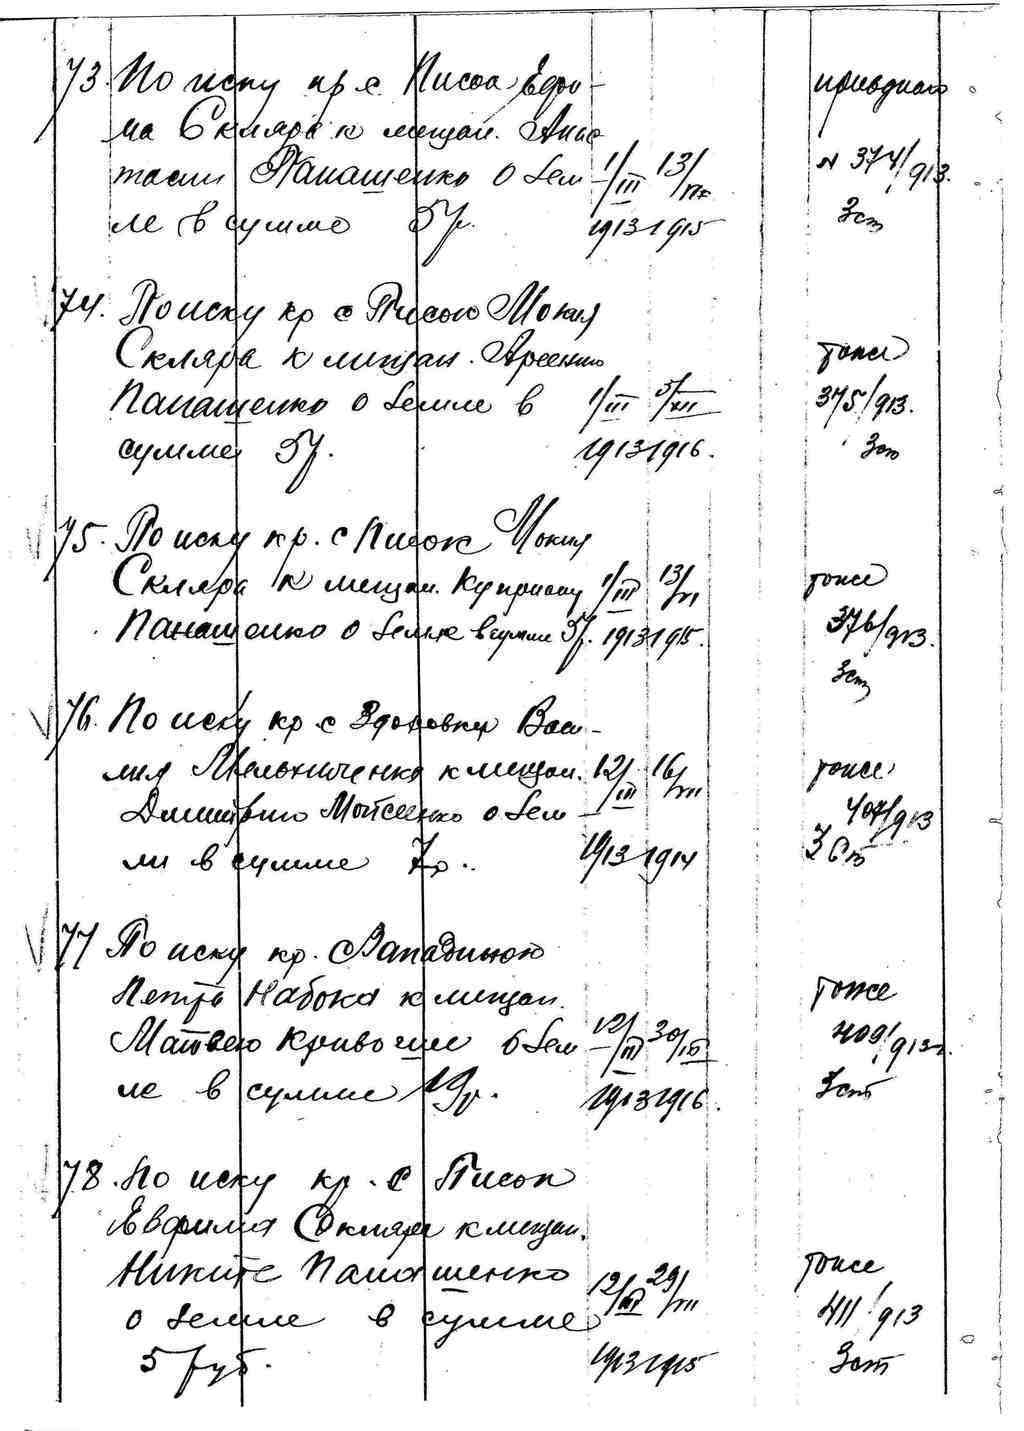 73. По иску кр. с. Писок Ефи-
ма Скляра к мещан. Анас
тасии Панашенко о зем-
ле в сумме 5 р.
1/III 13/
1913 1915
N 374/913.
3 ст
74. По иску кр с Писок Мокия
Скляра к мещан. Арсению
Панашенко о земле в
сумме 5 р.
1/III 5/XII
1913 1916.
тоже
375/913.
3 ст
75. По иску кр. с Писок Мокия
Скляра к мещан. Куприану
Панашенко о земле в сумме 5 р.
1/III 13/VI
1913 1915.
тоже
376/913.
3 ст
76. По иску кр с Здоровки Васи-
лия Мельниченко к мещан.
Дмитрию Мойсеенко о зем-
ли в сумме 7 р.
12/III 16/VII
1913 1914
тоже
407/913
3 ст
77 По иску кр.
Петра Набока к мещан.
Матвею Кривошии о зем
ле в сумме 19 р.
12/III 30/
1913 1916.
тоже
409/913
3 ст
78. По иску кр. с Писок
Скляра к мещан.
Никите Панашенко
о земле в сумме
5 руб.
12/III 29/VII
1913 1915
тоже
411/913
3 ст